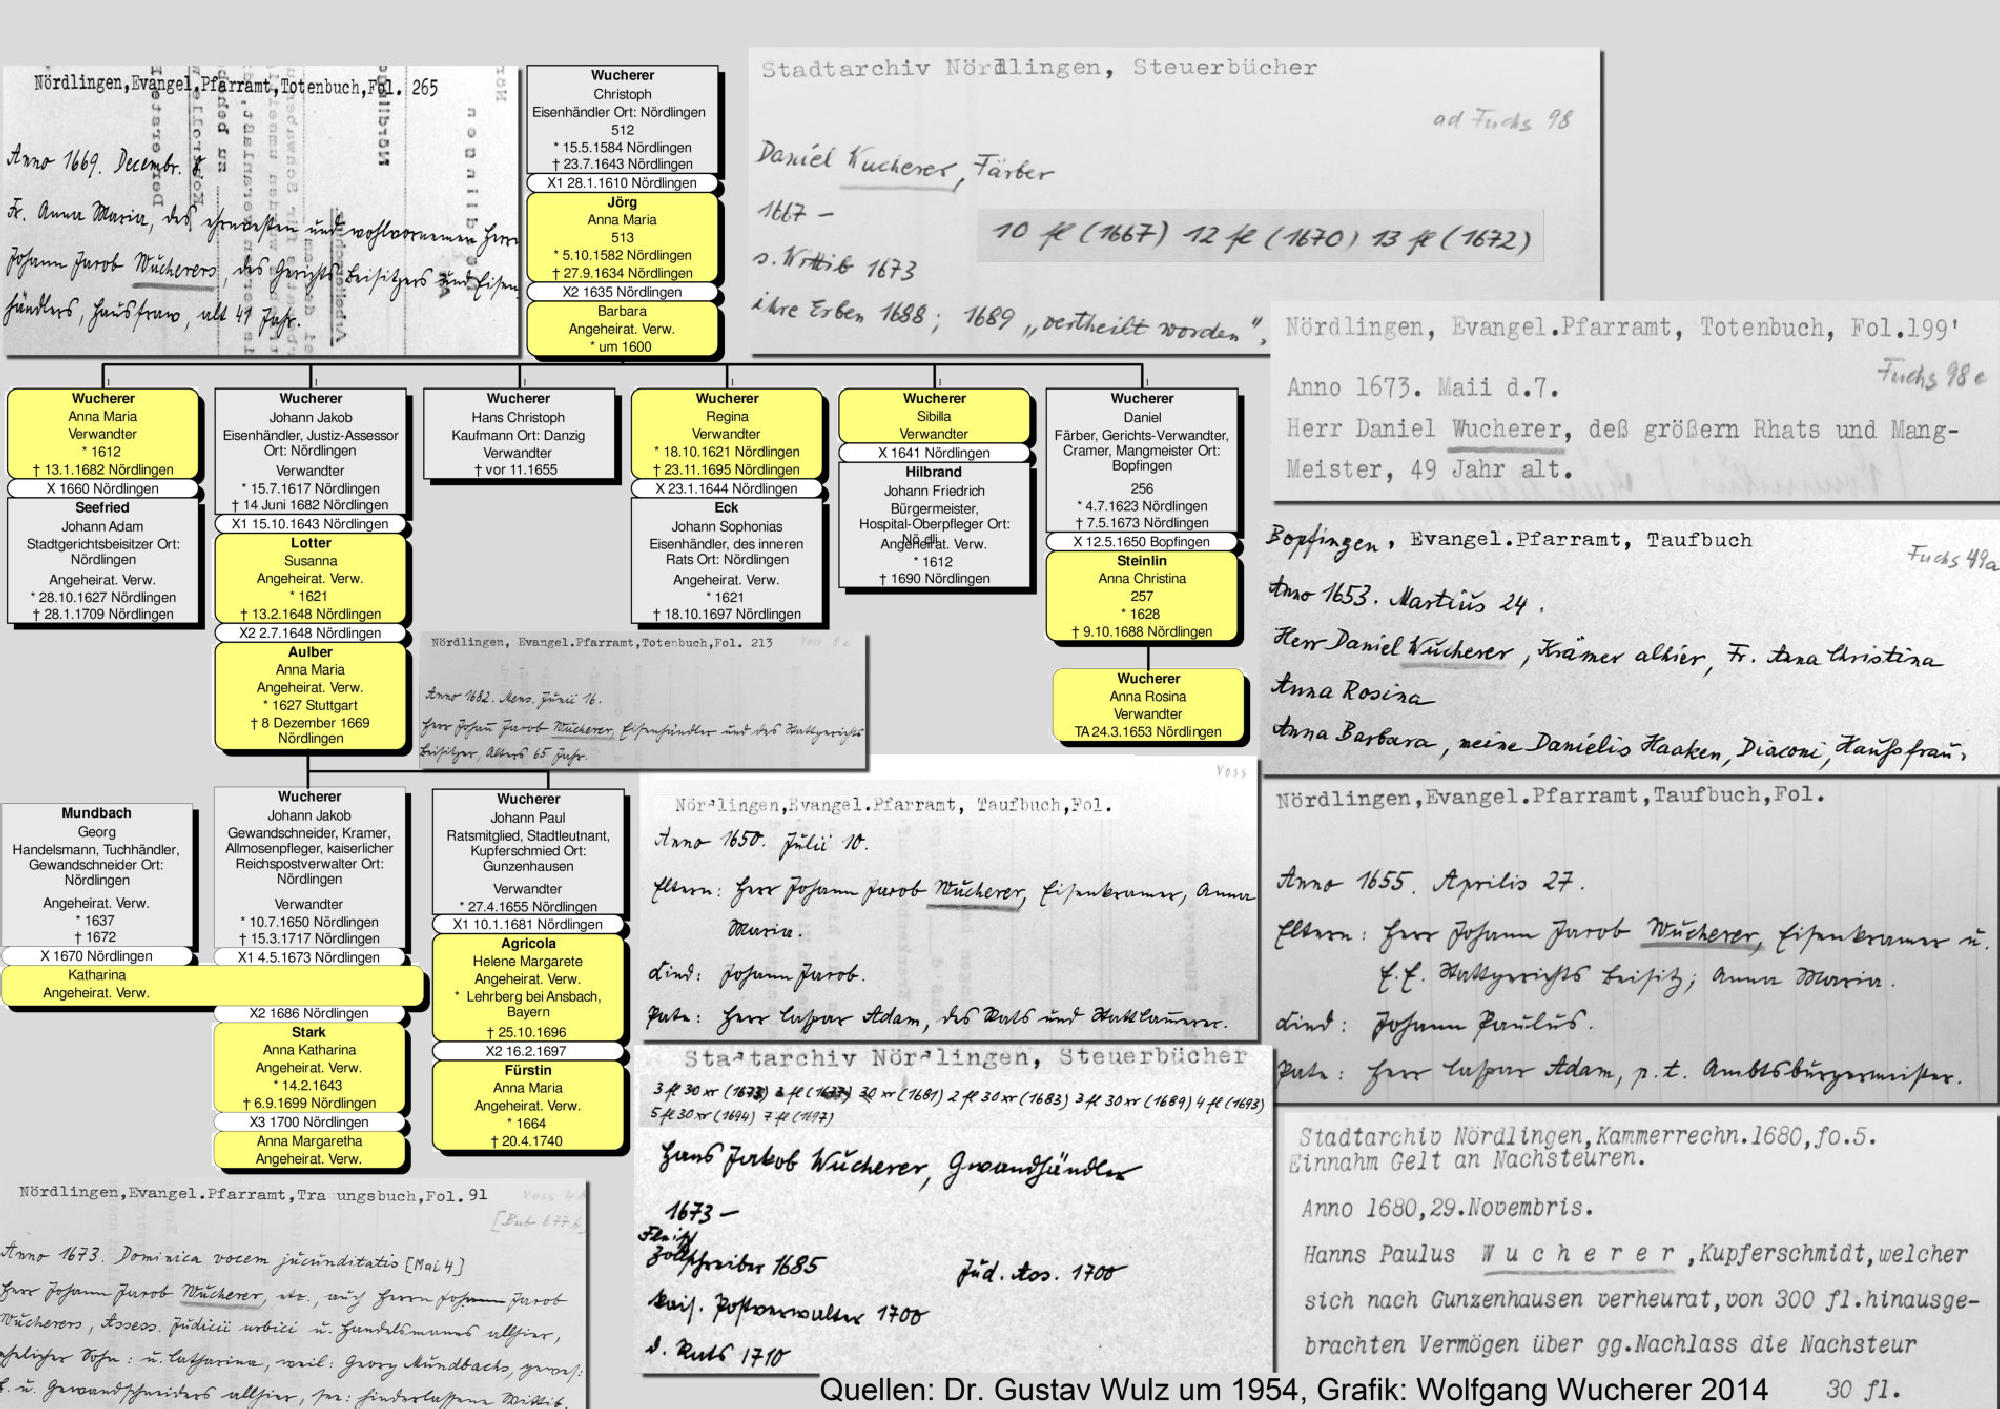 Nördlingen,Evangel.Pfarramt,Totenbuch,Fol. 265
Anno 1669. Decembr. 8
Fr. Anna Maria, des ehrnvesten und wohlvornemen Herrn
Johann Jacob Wucherers, des Gerichts Beisitzers und Eisen-
händlers, Hausfraw, alt 41 Jahr.
Wucherer
Christoph
Eisenhändler Ort: Nördlingen
512
* 15.5.1584 Nördlingen
† 23.7.1643 Nördlingen
X1 28.1.1610 Nördlingen
Jörg
Anna Maria
513
* 5.10.1582 Nördlingen
† 27.9.1634 Nördlingen
X2 1635 Nördlingen
Barbara
Angeheirat. Verw.
* um 1600
Stadtarchiv Nördlingen, Steuerbücher
ad Fuchs 98
Daniel Wucherer, Färber
1667 –
10 fl (1667) 12 fl (1670) 13 fl (1672)
s. Wittib 1673
ihre Erben 1688; 1689 „vertheilt worden".
Nördlingen, Evangel.Pfarramt, Totenbuch, Fol.199'
Fuchs 98 c
Anno 1673. Maii d.7.
Herr Daniel Wucherer, deß größern Rhats und Mang-
Meister, 49 Jahr alt.
Wucherer
Anna Maria
Verwandter
* 1612
† 13.1.1682 Nördlingen
X 1660 Nördlingen
Seefried
Johann Adam
Stadtgerichtsbeisitzer Ort:
Nördlingen
Angeheirat. Verw.
* 28.10.1627 Nördlingen
† 28.1.1709 Nördlingen
Wucherer
Johann Jakob
Eisenhändler, Justiz-Assessor
Ort: Nördlingen
Verwandter
* 15.7.1617 Nördlingen
† 14 Juni 1682 Nördlingen
X1 15.10.1643 Nördlingen
Lotter
Susanna
Angeheirat. Verw.
* 1621
† 13.2.1648 Nördlingen
X2 2.7.1648 Nördlingen
Aulber
Anna Maria
Angeheirat. Verw.
* 1627 Stuttgart
† 8 Dezember 1669
Nördlingen
Wucherer
Hans Christoph
Kaufmann Ort: Danzig
Verwandter
† vor 11.1655
Wucherer
Regina
Verwandter
* 18.10.1621 Nördlingen
† 23.11.1695 Nördlingen
X 23.1.1644 Nördlingen
Eck
Johann Sophonias
Eisenhändler, des inneren
Rats Ort: Nördlingen
Angeheirat. Verw.
* 1621
† 18.10.1697 Nördlingen
Wucherer
Sibilla
Verwandter
X 1641 Nördlingen
Hilbrand
Johann Friedrich
Bürgermeister,
Hospital-Oberpfleger Ort:
Angeheirat. Verw.
* 1612
† 1690 Nördlingen
Wucherer
Daniel
Färber, Gerichts-Verwandter,
Cramer, Mangmeister Ort:
Bopfingen
256
* 4.7.1623 Nördlingen
† 7.5.1673 Nördlingen
X 12.5.1650 Bopfingen
Steinlin
Anna Christina
257
* 1628
† 9.10.1688 Nördlingen
Wucherer
Anna Rosina
Verwandter
TA 24.3.1653 Nördlingen
Bopfingen, Evangel.Pfarramt, Taufbuch
Fuchs 49a
Anno 1653. Martiùs 24.
Herr Daniel Wucherer, Krämer alhier, Fr. Anna Christina
Anna Rosina
Anna Barbara, meine Danielis Haaken, Diaconi, Haußfrau.
Nördlingen, Evangel.Pfarramt,Totenbuch,Fol. 213
Voss 8 c
Anno 1682. Mens. Junii 16.
Herr Johann Jacob Wucherer, Eisenhändler und des Stattgerichts
Beisitzer, Alters 65 Jahr.
Mundbach
Georg
Handelsmann, Tuchhändler,
Gewandschneider Ort:
Nördlingen
Angeheirat. Verw.
* 1637
† 1672
X 1670 Nördlingen
Katharina
Angeheirat. Verw.
Wucherer
Johann Jakob
Gewandschneider, Kramer,
Allmosenpfleger, kaiserlicher
Reichspostverwalter Ort:
Nördlingen
Verwandter
* 10.7.1650 Nördlingen
† 15.3.1717 Nördlingen
X1 4.5.1673 Nördlingen
X2 1686 Nördlingen
Stark
Anna Katharina
Angeheirat. Verw.
* 14.2.1643
† 6.9.1699 Nördlingen
X3 1700 Nördlingen
Anna Margaretha
Angeheirat. Verw.
Wucherer
Johann Paul
Ratsmitglied, Stadtleutnant,
Kupferschmied Ort:
Gunzenhausen
Verwandter
* 27.4.1655 Nördlingen
X1 10.1.1681 Nördlingen
Agricola
Helene Margarete
Angeheirat. Verw.
* Lehrberg bei Ansbach,
Bayern
† 25.10.1696
X2 16.2.1697
Fürstin
Anna Maria
Angeheirat. Verw.
* 1664
† 20.4.1740
Voss
Nördlingen,Evangel.Pfarramt, Taufbuch,Fol.
Anno 1650. Julii 10.
Eltern: Herr Johann Jacob Wucherer, Eisenkramer, Anna
Maria.
Kind: Johann Jacob.
Pate: Herr Caspar Adam, des Rats und Stattkamerer.
Nördlingen,Evangel.Pfarramt,Taufbuch,Fol.
Anno 1655. Aprilis 27.
Eltern: Herr Johann Jacob Wucherer, Eisenkramer u.
E.E. Stattgerichts Beisitz; Anna Maria.
Kind: Johann Paulus.
Pate: Herr Caspar Adam, p.t. Ambtsbürgermeister.
Stadtarchiv Nördlingen, Steuerbücher
3 fl 30 xr (1673) 30 xr (1681) 2 fl 30 xr (1683) 3 fl 30 xr (1689) 4 fl (1693)
5 fl 30 xr (1694) 7 fl (1697)
Hans Jakob Wucherer, Gwandhändler
1673 –
Fleisch
Zollschreiber 1685
Jud. Ass. 1700
Kais. Postverwalter 1700
d. Rats 1710
Stadtarchiv Nördlingen,Kammerrechn.1680,fo.5.
Einnahm Gelt an Nachsteuren.
Anno 1680,29.Novembris.
Hanns Paulus Wucherer,Kupferschmidt,welcher
sich nach Gunzenhausen verheurat,von 300 fl.hinausge-
brachten Vermögen über gg.Nachlass die Nachsteur
30 fl.
Nördlingen,Evangel.Pfarramt,Tra ungsbuch,Fol. 91
Anno 1673. Dominica vocem jucunditatis [Mai 4]
Herr Johann Jacob Wucherer, etc., auch Herrn Johann Jacob
Wucherers, Assess. Judicii urbici u. Handelsmanns allhier,
ehelicher Sohn: u. Catharina, weil: Georg Mundbachs, gewes:
u. Gewandschneiders allhier, see: hinderlassene Wittib.
Quellen: Dr. Gustav Wulz um 1954, Grafik: Wolfgang Wucherer 2014